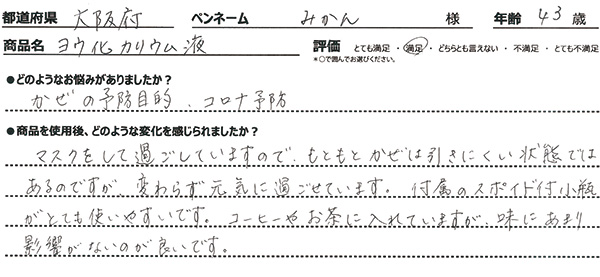 都道府県 大阪府 ペンネーム みかん 様 年齢 43 歳
商品名 ヨウ化カリウム液 評価 とても満足・満足・どちらとも言えない・不満足・とても不満足
*○で囲んでお選びください。
●どのようなお悩みがありましたか?
かぜの予防目的、コロナ予防
●商品を使用後、どのような変化を感じられましたか?
マスクをして過ごしていますので、もともとかぜは引きにくい状態では
あるのですが、変わらず元気に過ごせています。付属のスポイド付小瓶
がとても使いやすいです。コーヒーやお茶に入れていますが、味にあまり
影響がないのが良いです。